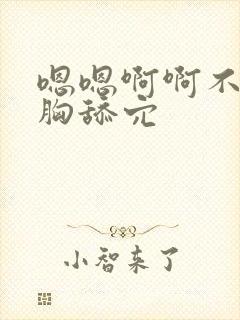 嗯嗯啊啊不
胸舔穴
小智来了